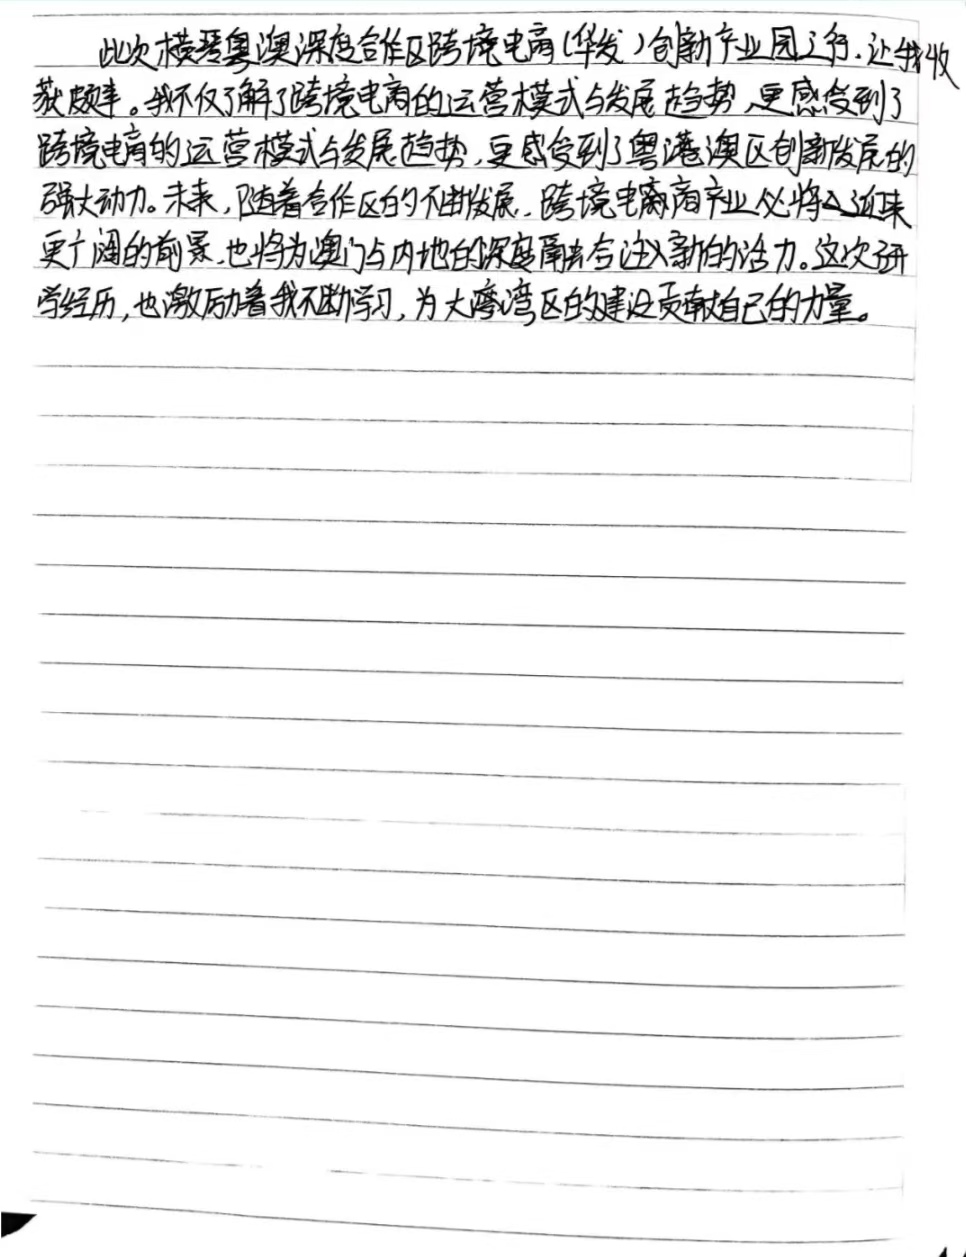 此次横琴粤澳深度合作区跨境电商(华发)创新产业园之行,让我收
获颇丰。我不仅了解了跨境电商的运营模式与发展趋势,更感受到了
跨境电商的运营模式与发展趋势,更感受到了粤港澳区创新发展的
强大动力。未来,随着合作区的不断发展,跨境电商产业必将迎来
更广阔的前景,也将为澳门与内地的深度融合注入新的活力。这次研
学经历,也激励着我不断学习,为大湾区的建设贡献自己的力量。